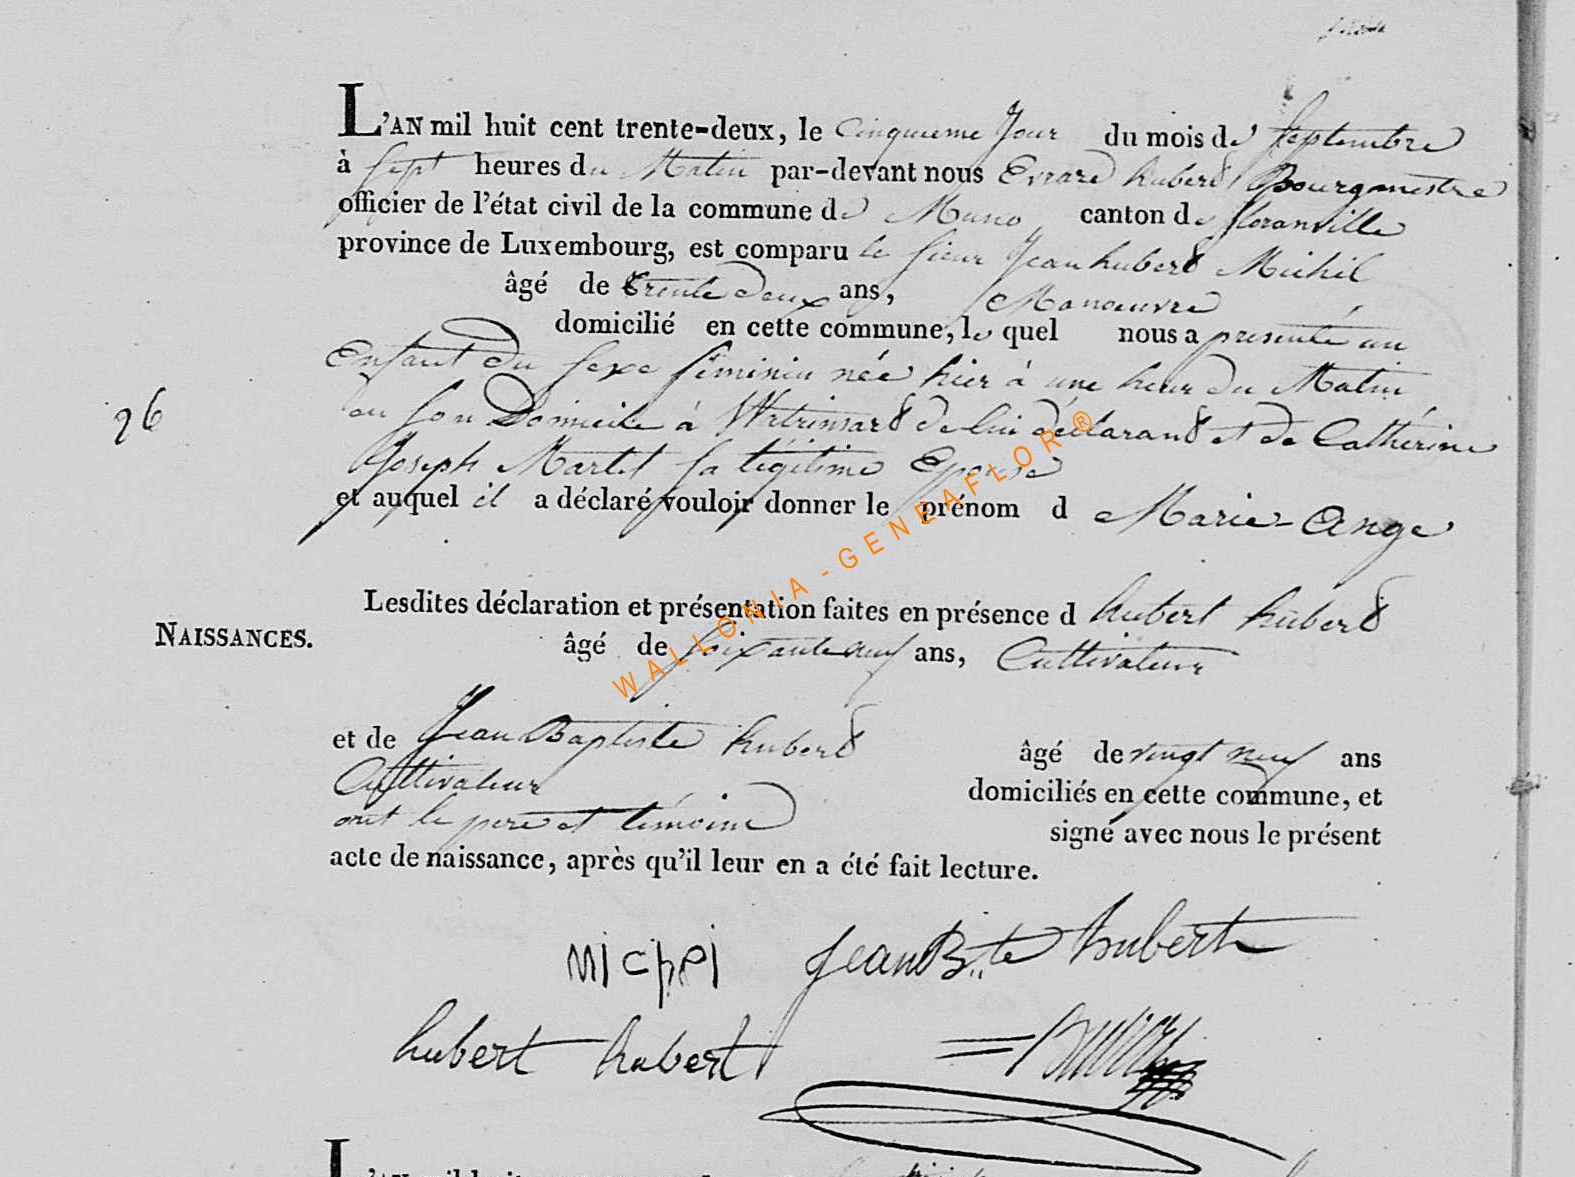 L'AN mil huit cent trente-deux, le Cinquieme Jour du mois de Septembre
à Sept heures du Matin par-devant nous Evrard hubert Bourgmestre
officier de l'état civil de la commune de Muno canton de florenville
province de Luxembourg, est comparu le sieur Jean hubert Michel
âgé de trente deux ans, Manoeuvre
domicilié en cette commune, le quel nous a presenté un
Enfant du sexe féminin née hier à une heur du Matin
en son Domicile à Watrinsart de lui déclarant et de Cathérine
Joseph Martel sa légitime Epouse
26
et auquel il a déclaré vouloir donner le prénom d Marie-Ange
Lesdites déclaration et présentation faites en présence d hubert hubert
NAISSANCES.
âgé de soixante neuf ans, Cultivateur
et de Jean Baptiste hubert âgé de vingt neuf ans
Cultivateur domiciliés en cette commune, et
ont le pere et témoins signé avec nous le présent
acte de naissance, après qu'il leur en a été fait lecture.
Michel Jean Bte hubert
hubert hubert
L'AN mil huit
WALLONIA-GENEAFLOR®